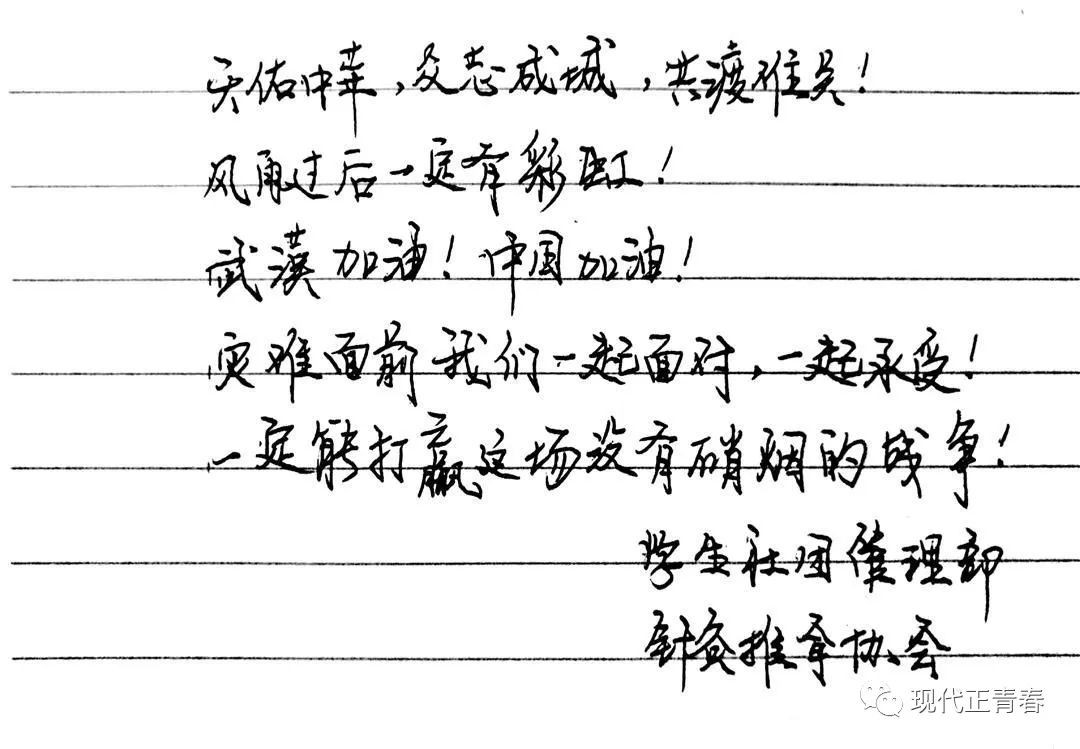 天佑中华,众志成城,共渡难关!
风雨过后一定有彩虹!
武漢加油!中国加油!
灾难面前我们一起面对,一起承受!
一定能打赢这场没有硝烟的战争!
学生社团管理部
针灸推拿协会
现代正青春